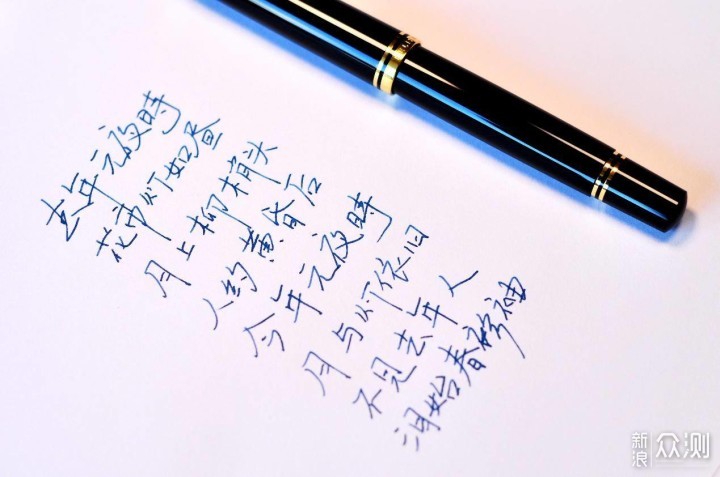 去年元夜時
花市灯如昼
月上柳梢头
人约黄昏后
今年元夜時
月与灯依旧
不见去年人
泪始春衫袖
新浪众测